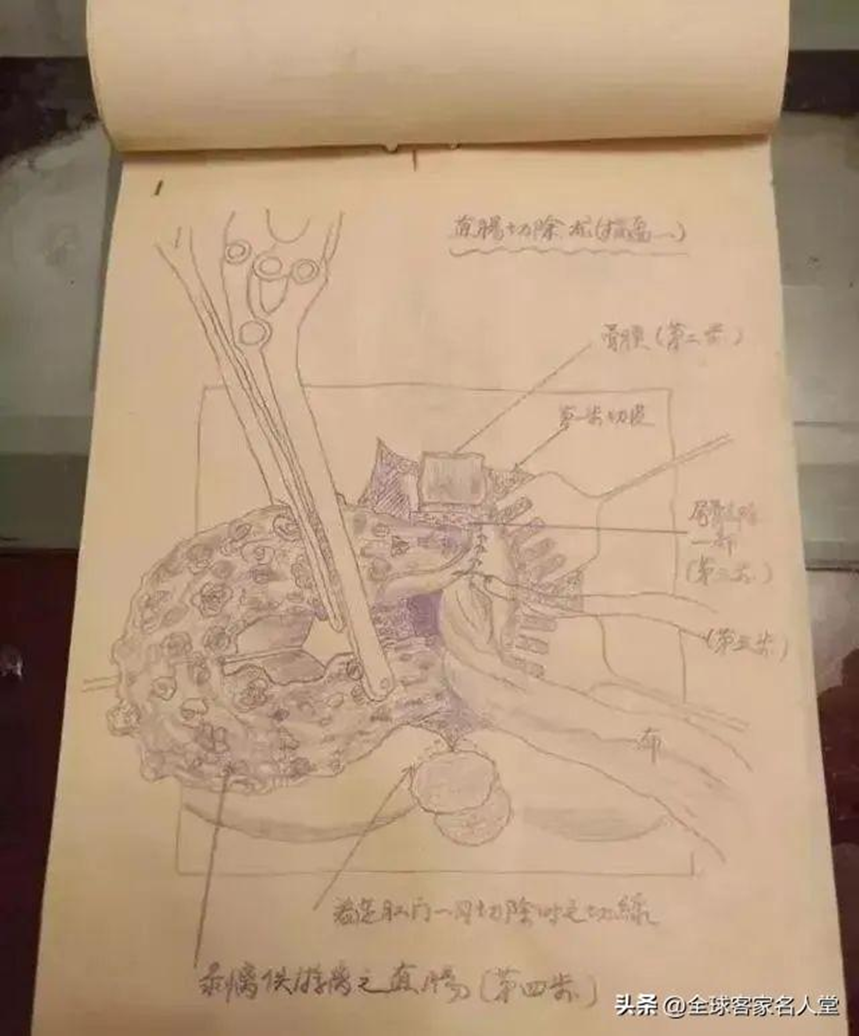 1
直腸切除术(描画一)
骨膜(第二步)
第一步切皮
尾骨切除
一部
(第三步)
(第五步)
布
若是肛门一同切除时之切線
剥離供游離之直腸(第四步)
头条 @全球客家名人堂